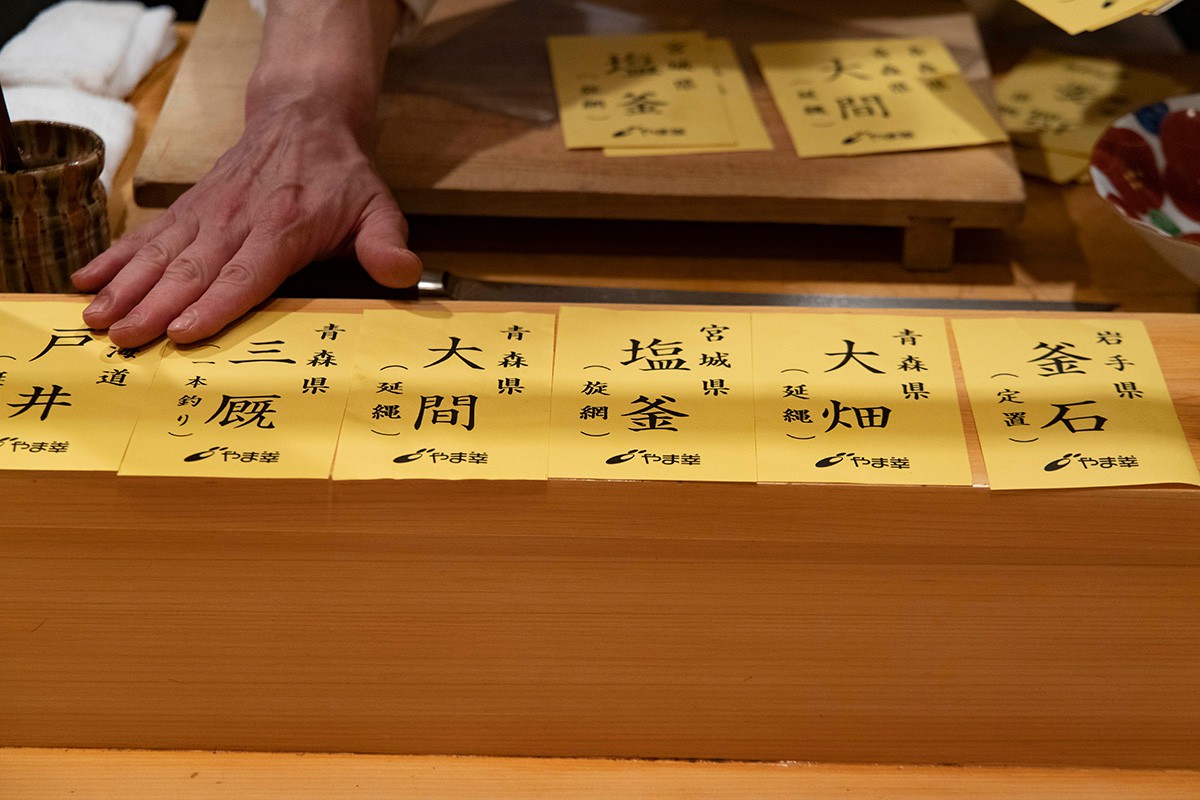 海道
戸井
やま幸
青森県
三厩
(一本釣り)
やま幸
青森県
大間
(延縄)
やま幸
宮城県
塩釜
(旋網)
やま幸
青森県
大畑
(延縄)
やま幸
岩手県
釜石
(定置)
やま幸
宮城県
塩釜
やま幸
青森県
大間
(延縄)
やま幸